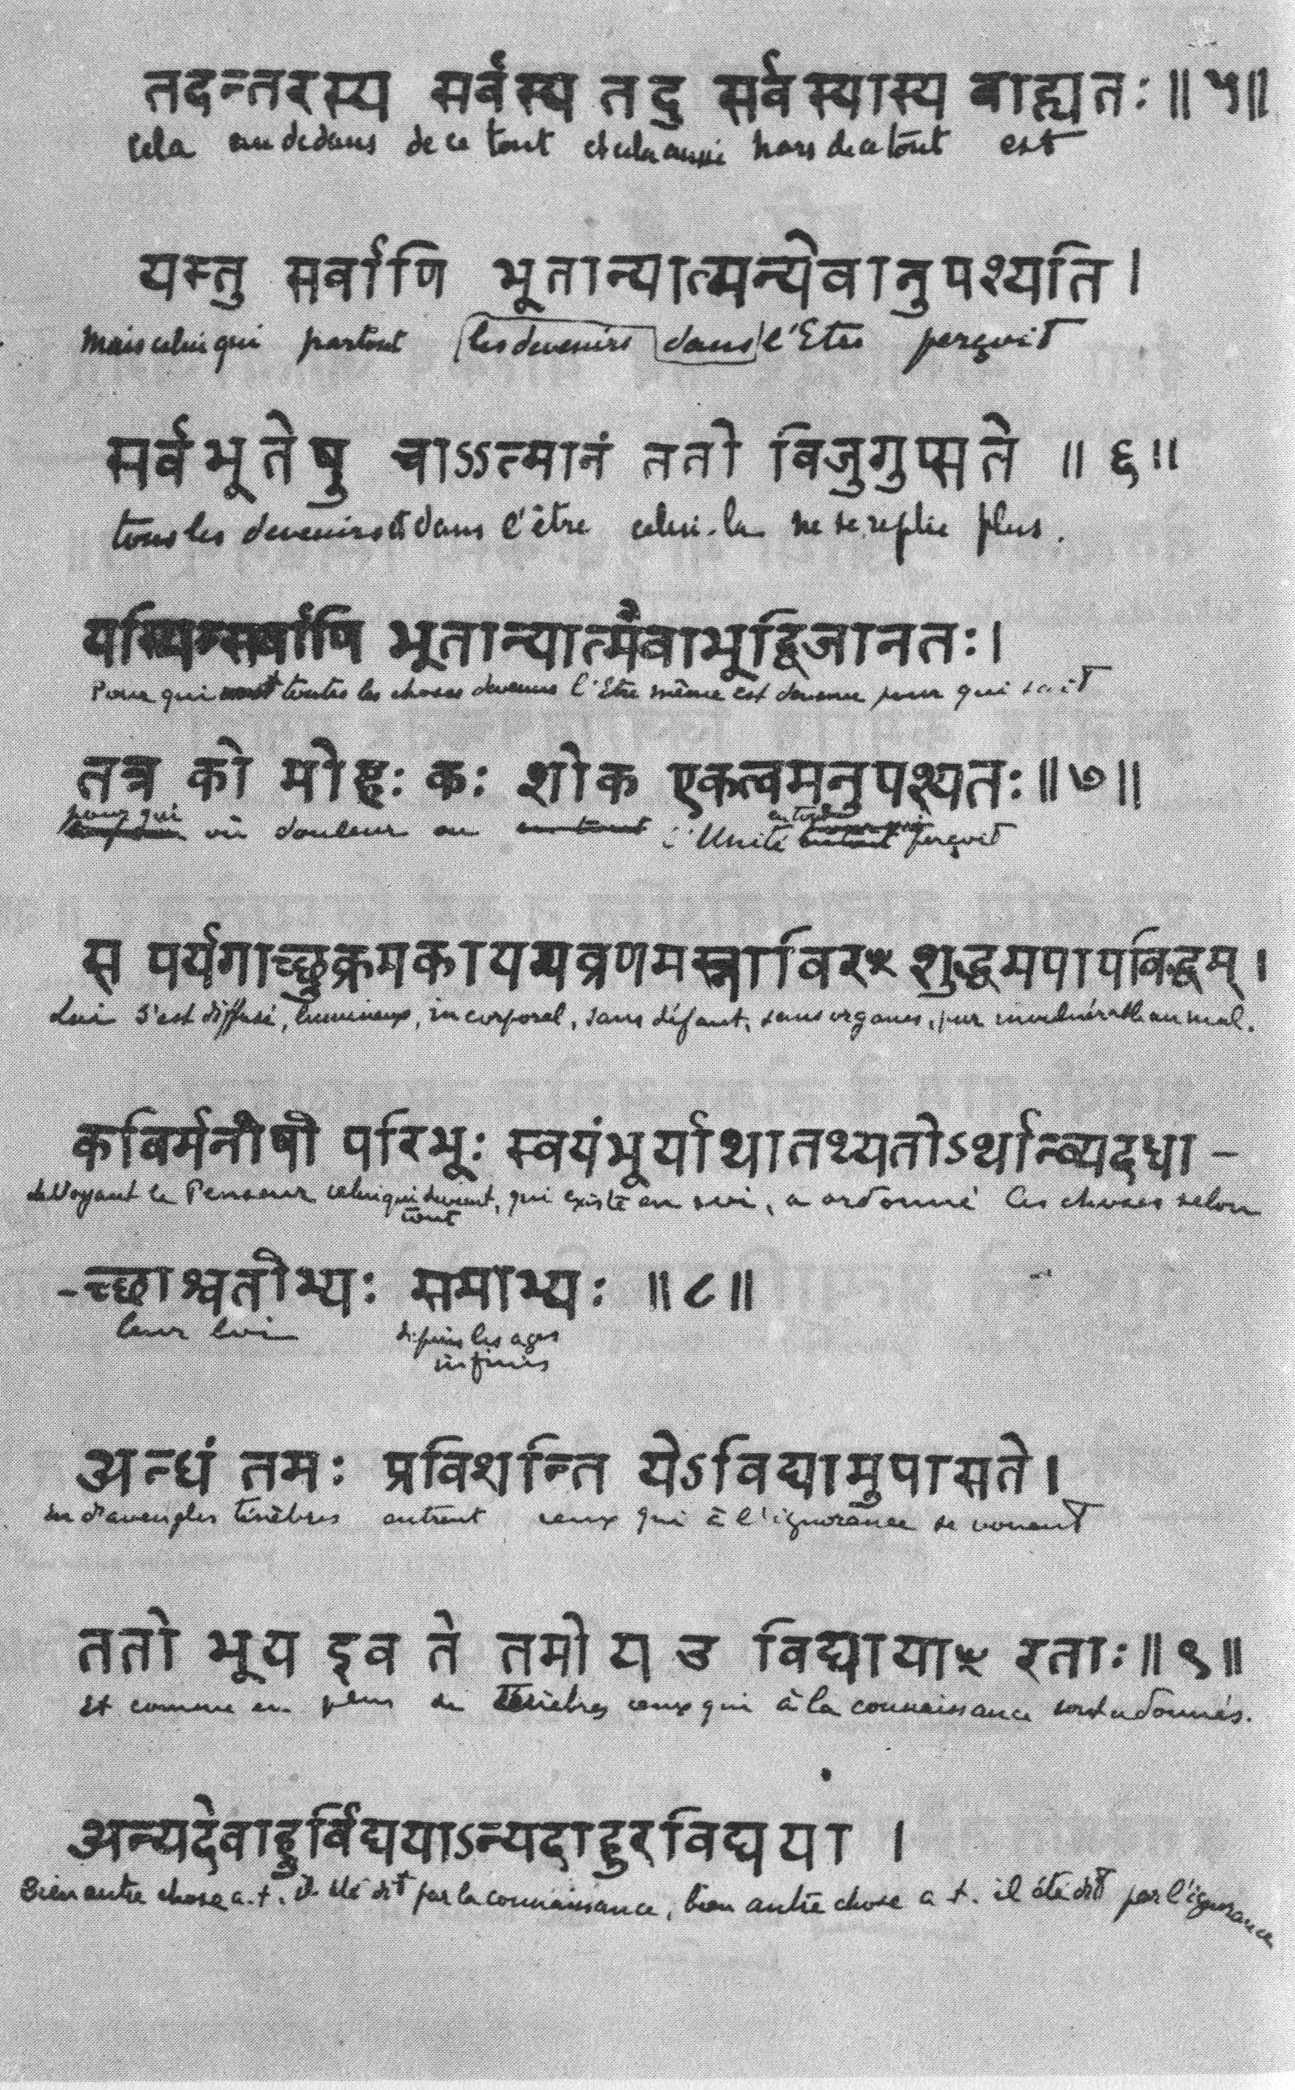 तदन्तरस्य सर्वस्य तदु सर्वस्यास्य बाह्यतः ॥ ५ ॥
cela au dedans de ce tout et cela aussi hors de ce tout est
यस्तु सर्वाणि भूतान्यात्मन्येवानुपश्यति ।
mais celui qui partout les devenirs dans l'Etre perçoit
सर्वभूतेषु चाऽऽत्मानं ततो विजुगुप्सते ॥ ६ ॥
tous les devenirs et dans l'être celui-la ne se replie plus.
यस्मिन्सर्वाणि भूतान्यात्मैवाभूद्विजानतः ।
Pour qui toutes les choses devenues l'Etre même est devenu pour qui sait
तत्र को मोहः कः शोक एकत्वमनुपश्यतः ॥ ७ ॥
pour qui
où douleur ou en tout l'Unité perçoit
en tout
स पर्यगाच्छुक्रमकायमव्रणमस्नाविरꣳ शुद्धमपापविद्धम् ।
Lui s'est diffusé, lumineux, incorporel, sans défaut, sans organes, pur invulnérable au mal.
कविर्मनीषी परिभूः स्वयंभूर्याथातथ्यतोऽर्थान्व्यदधा -
le Voyant le Penseur celui qui devient, qui existe en soi, a ordonné les choses selon
tout
- च्छाश्वतीभ्यः समाभ्यः ॥ ८ ॥
leur loi depuis les ages
infinis
अन्धं तमः प्रविशन्ति येऽविद्यामुपासते ।
en d'aveugles ténèbres entrent ceux qui à l'ignorance se vouent
ततो भूय इव ते तमो य उ विद्यायाꣳ रताः ॥ ९ ॥
et comme en plus de ténèbres ceux qui à la connaissance sont adonnés.
अन्यदेवाहुर्विद्ययाऽन्यदाहुरविद्यया ।
Bien autre chose a.t. il été dit par la connaissance, bien autre chose a t. il été dit par l'ignorance